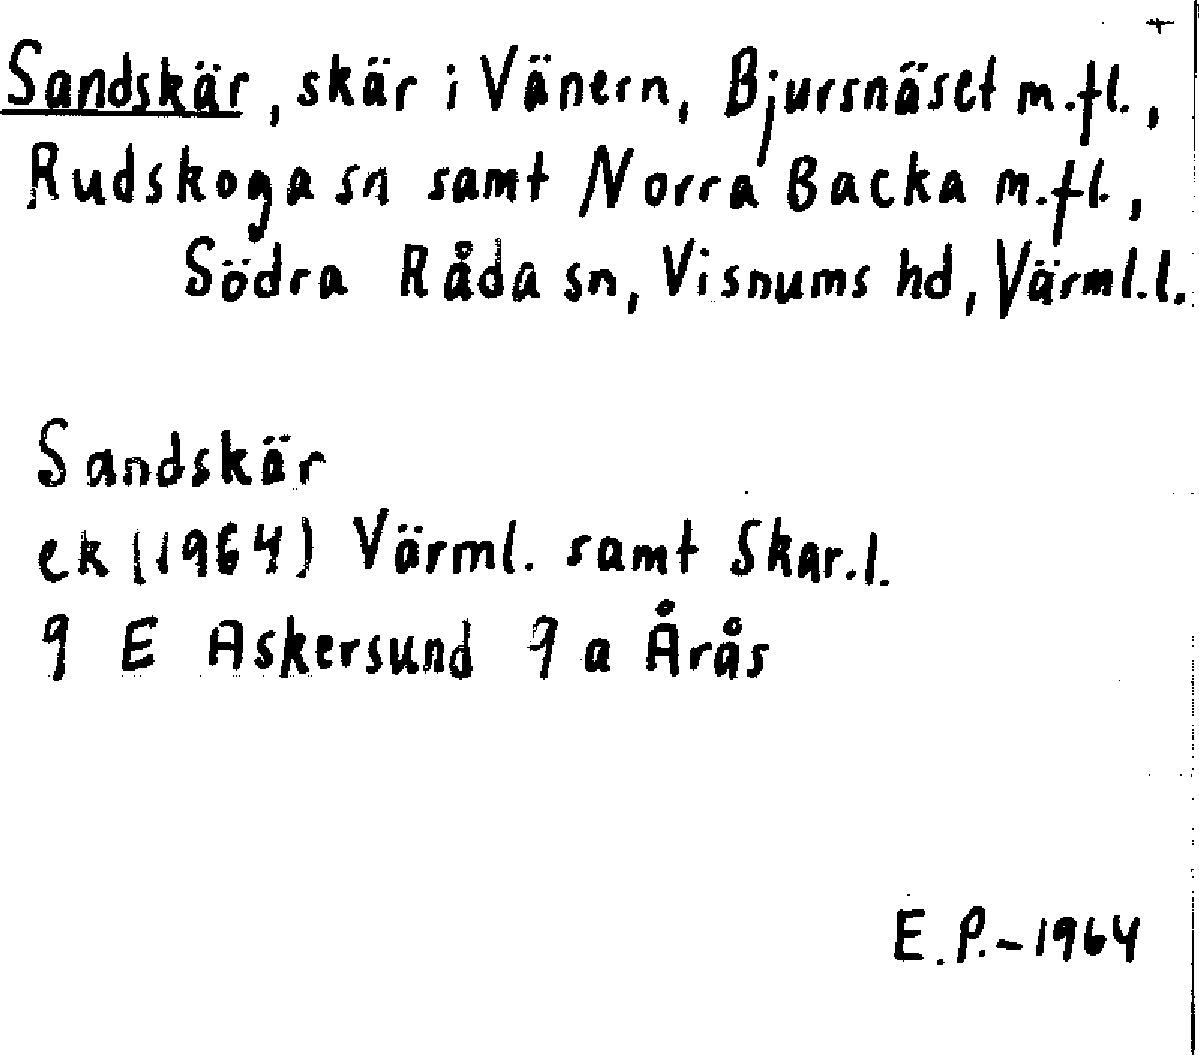 Sandskär, skär i Vänern, Bjursnäset m.fl.,
Rudskoga sn samt Norra Backa m.fl.,
Södra Råda sn, Visnums hd, Värml.l.
Sandskär
ek (1964) Värml. samt Skar.l.
9 E Askersund 9 a Årås
E.P.-1964